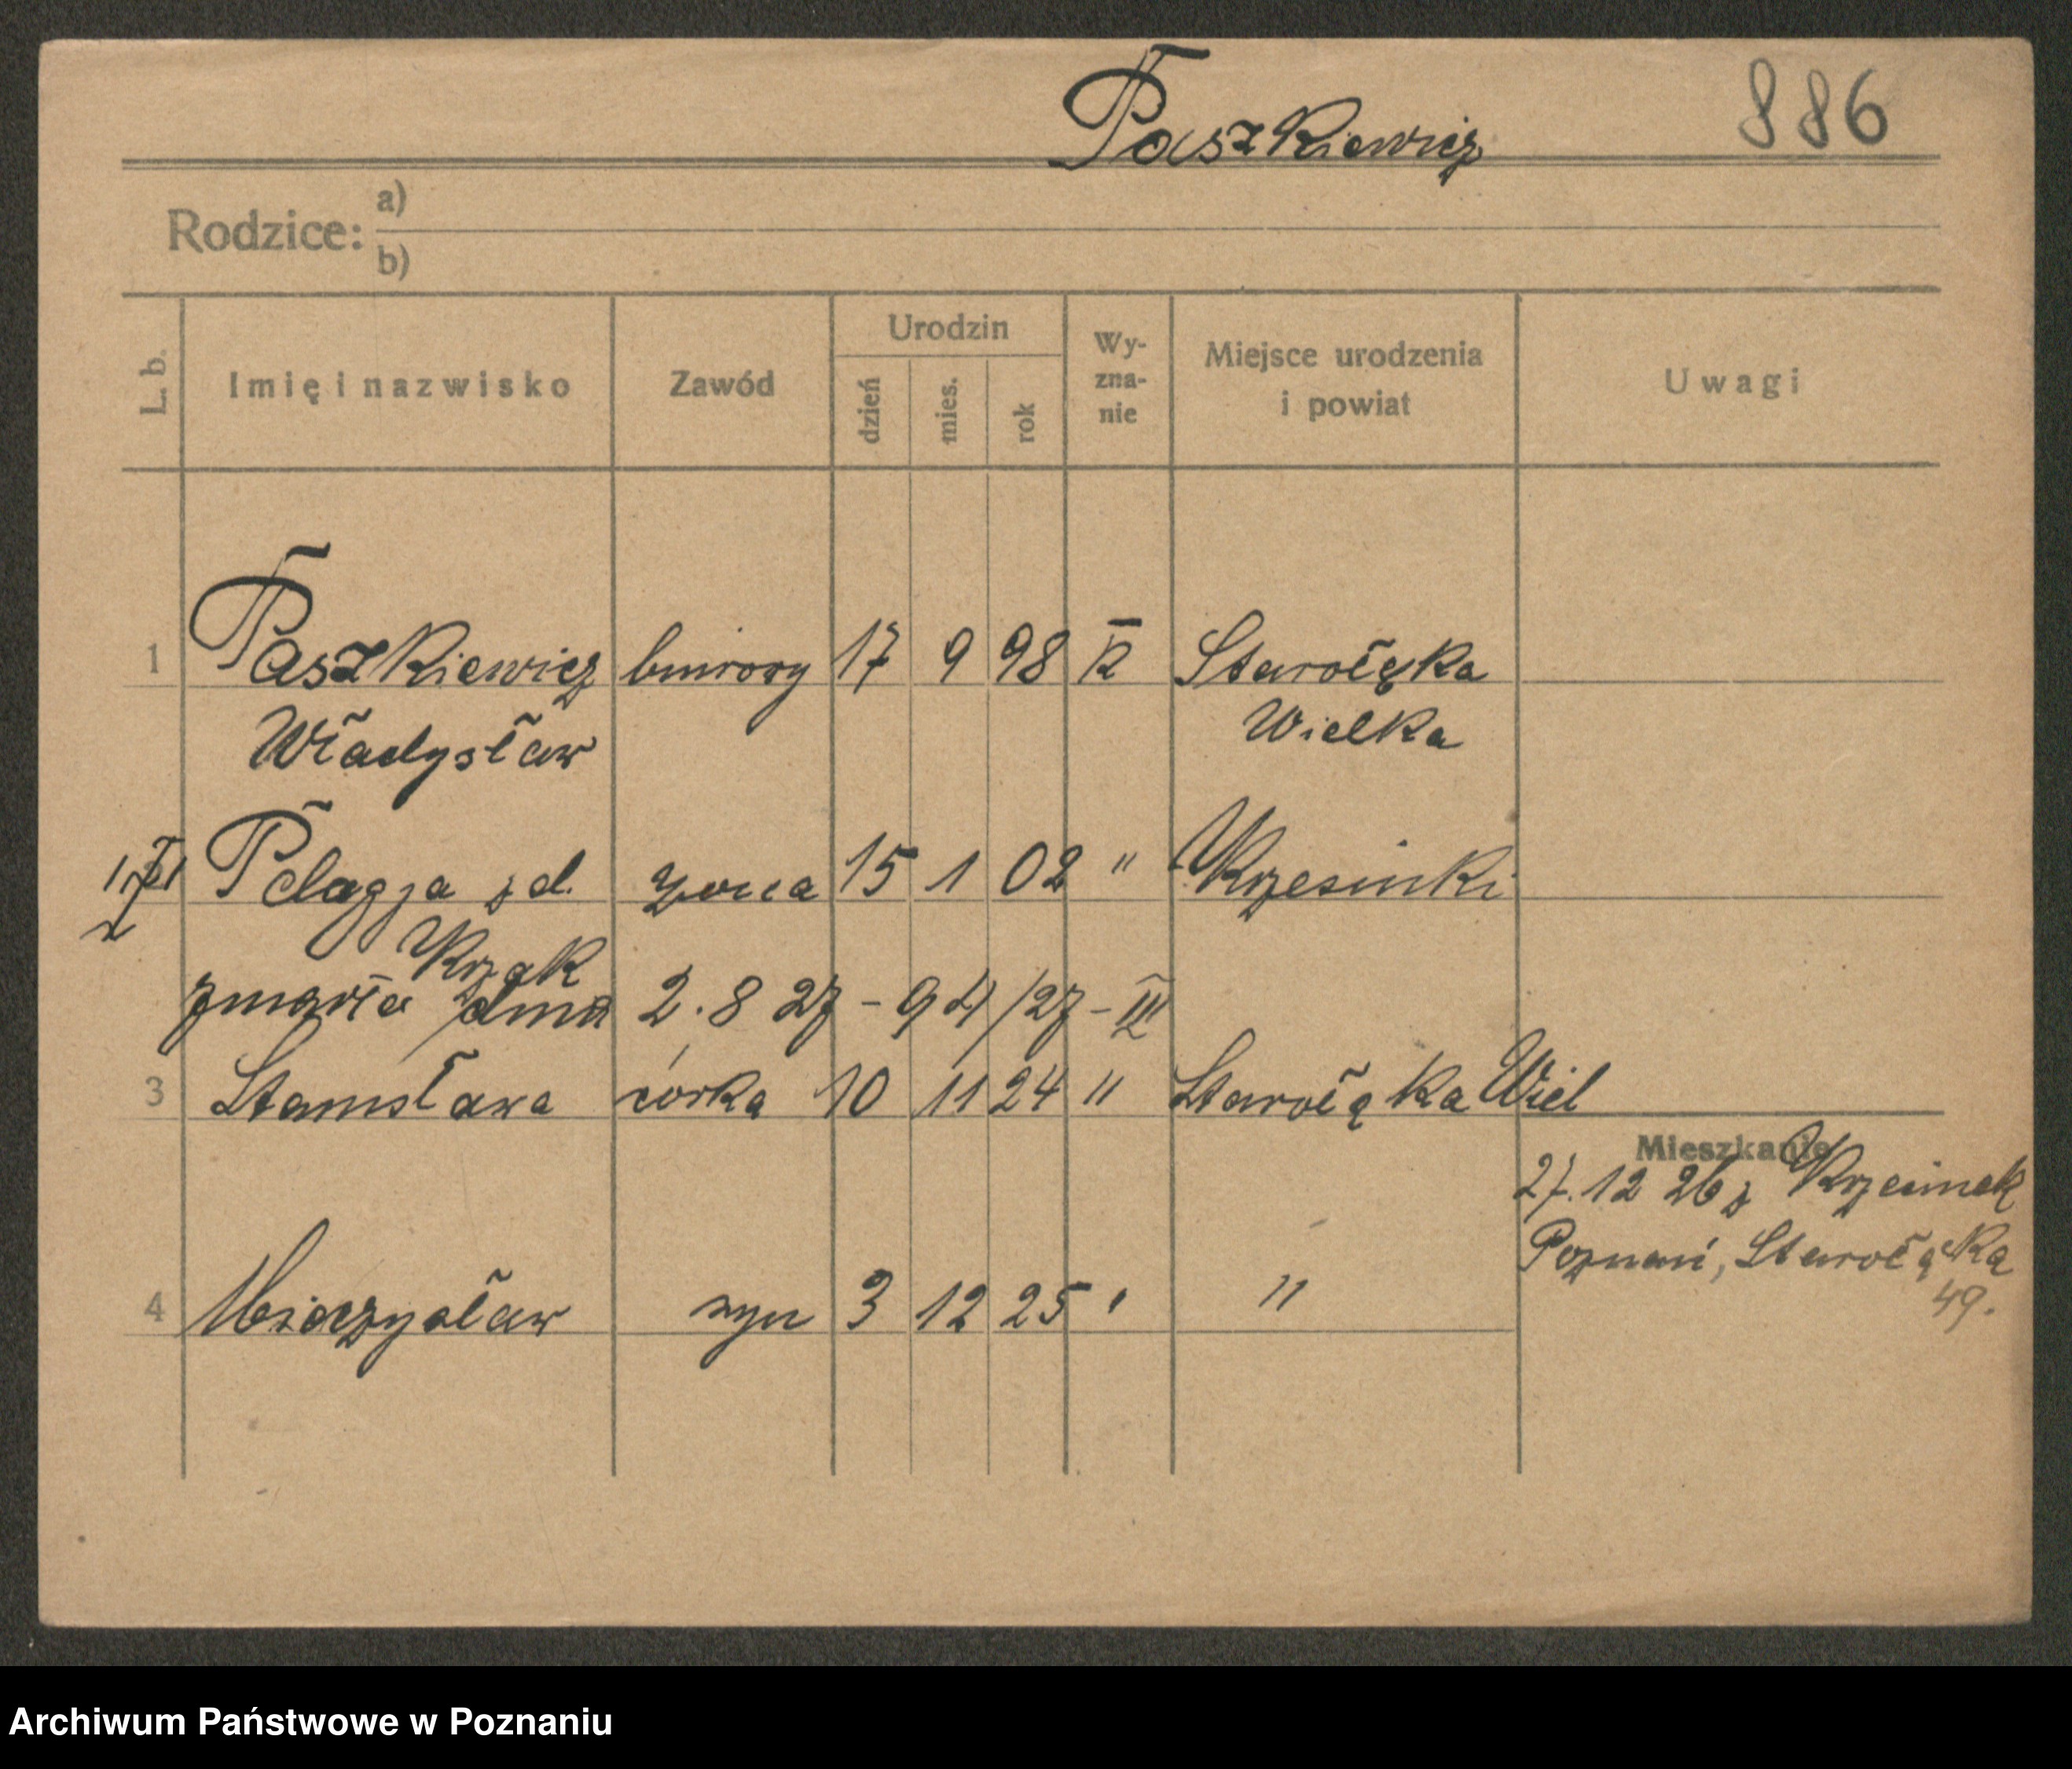 Paszkiewicz 886
Rodzice: a)
b)
L. b. Imię i nazwisko Zawód Urodzin dzień mies. rok Wy-zna-nie Miejsce urodzenia i powiat Uwagi
1 Paszkiewicz biurowy 17 9 98 K Starołęka
Władysław Wielka
Pelagja z d. żona 15 1 02 " Krzesinki
Krząk
zmarła dnia 2.8 27 - 94/27 - III
3 Stanisława córka 10 11 24 " Starołąka Wiel
Mieszkanie
27.12 26 z Krzesinek
Poznań, Starołąka
49.
4 Mieczysław syn 3 12 25 " "
Archiwum Państwowe w Poznaniu